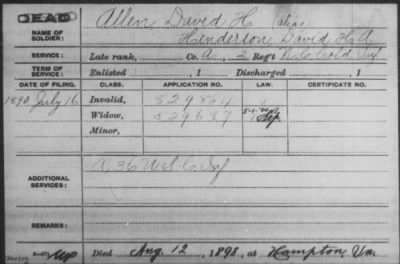 DEAD
NAME OF SOLDIER: Allen David H. alias
Henderson, David H. A
SERVICE: Late rank, Co. A, 2 Reg't N.C. Cold Inf
TERM OF SERVICE: Enlisted , 1 Discharged , 1
DATE OF FILING. CLASS. APPLICATION NO. LAW. CERTIFICATE NO.
1890 July 16 Invalid, 829884
Widow, 529687
Minor,
ADDITIONAL SERVICES: A 36 U.S.C. Inf
REMARKS:
Died Aug. 12, 1891, at Hampton, Va.